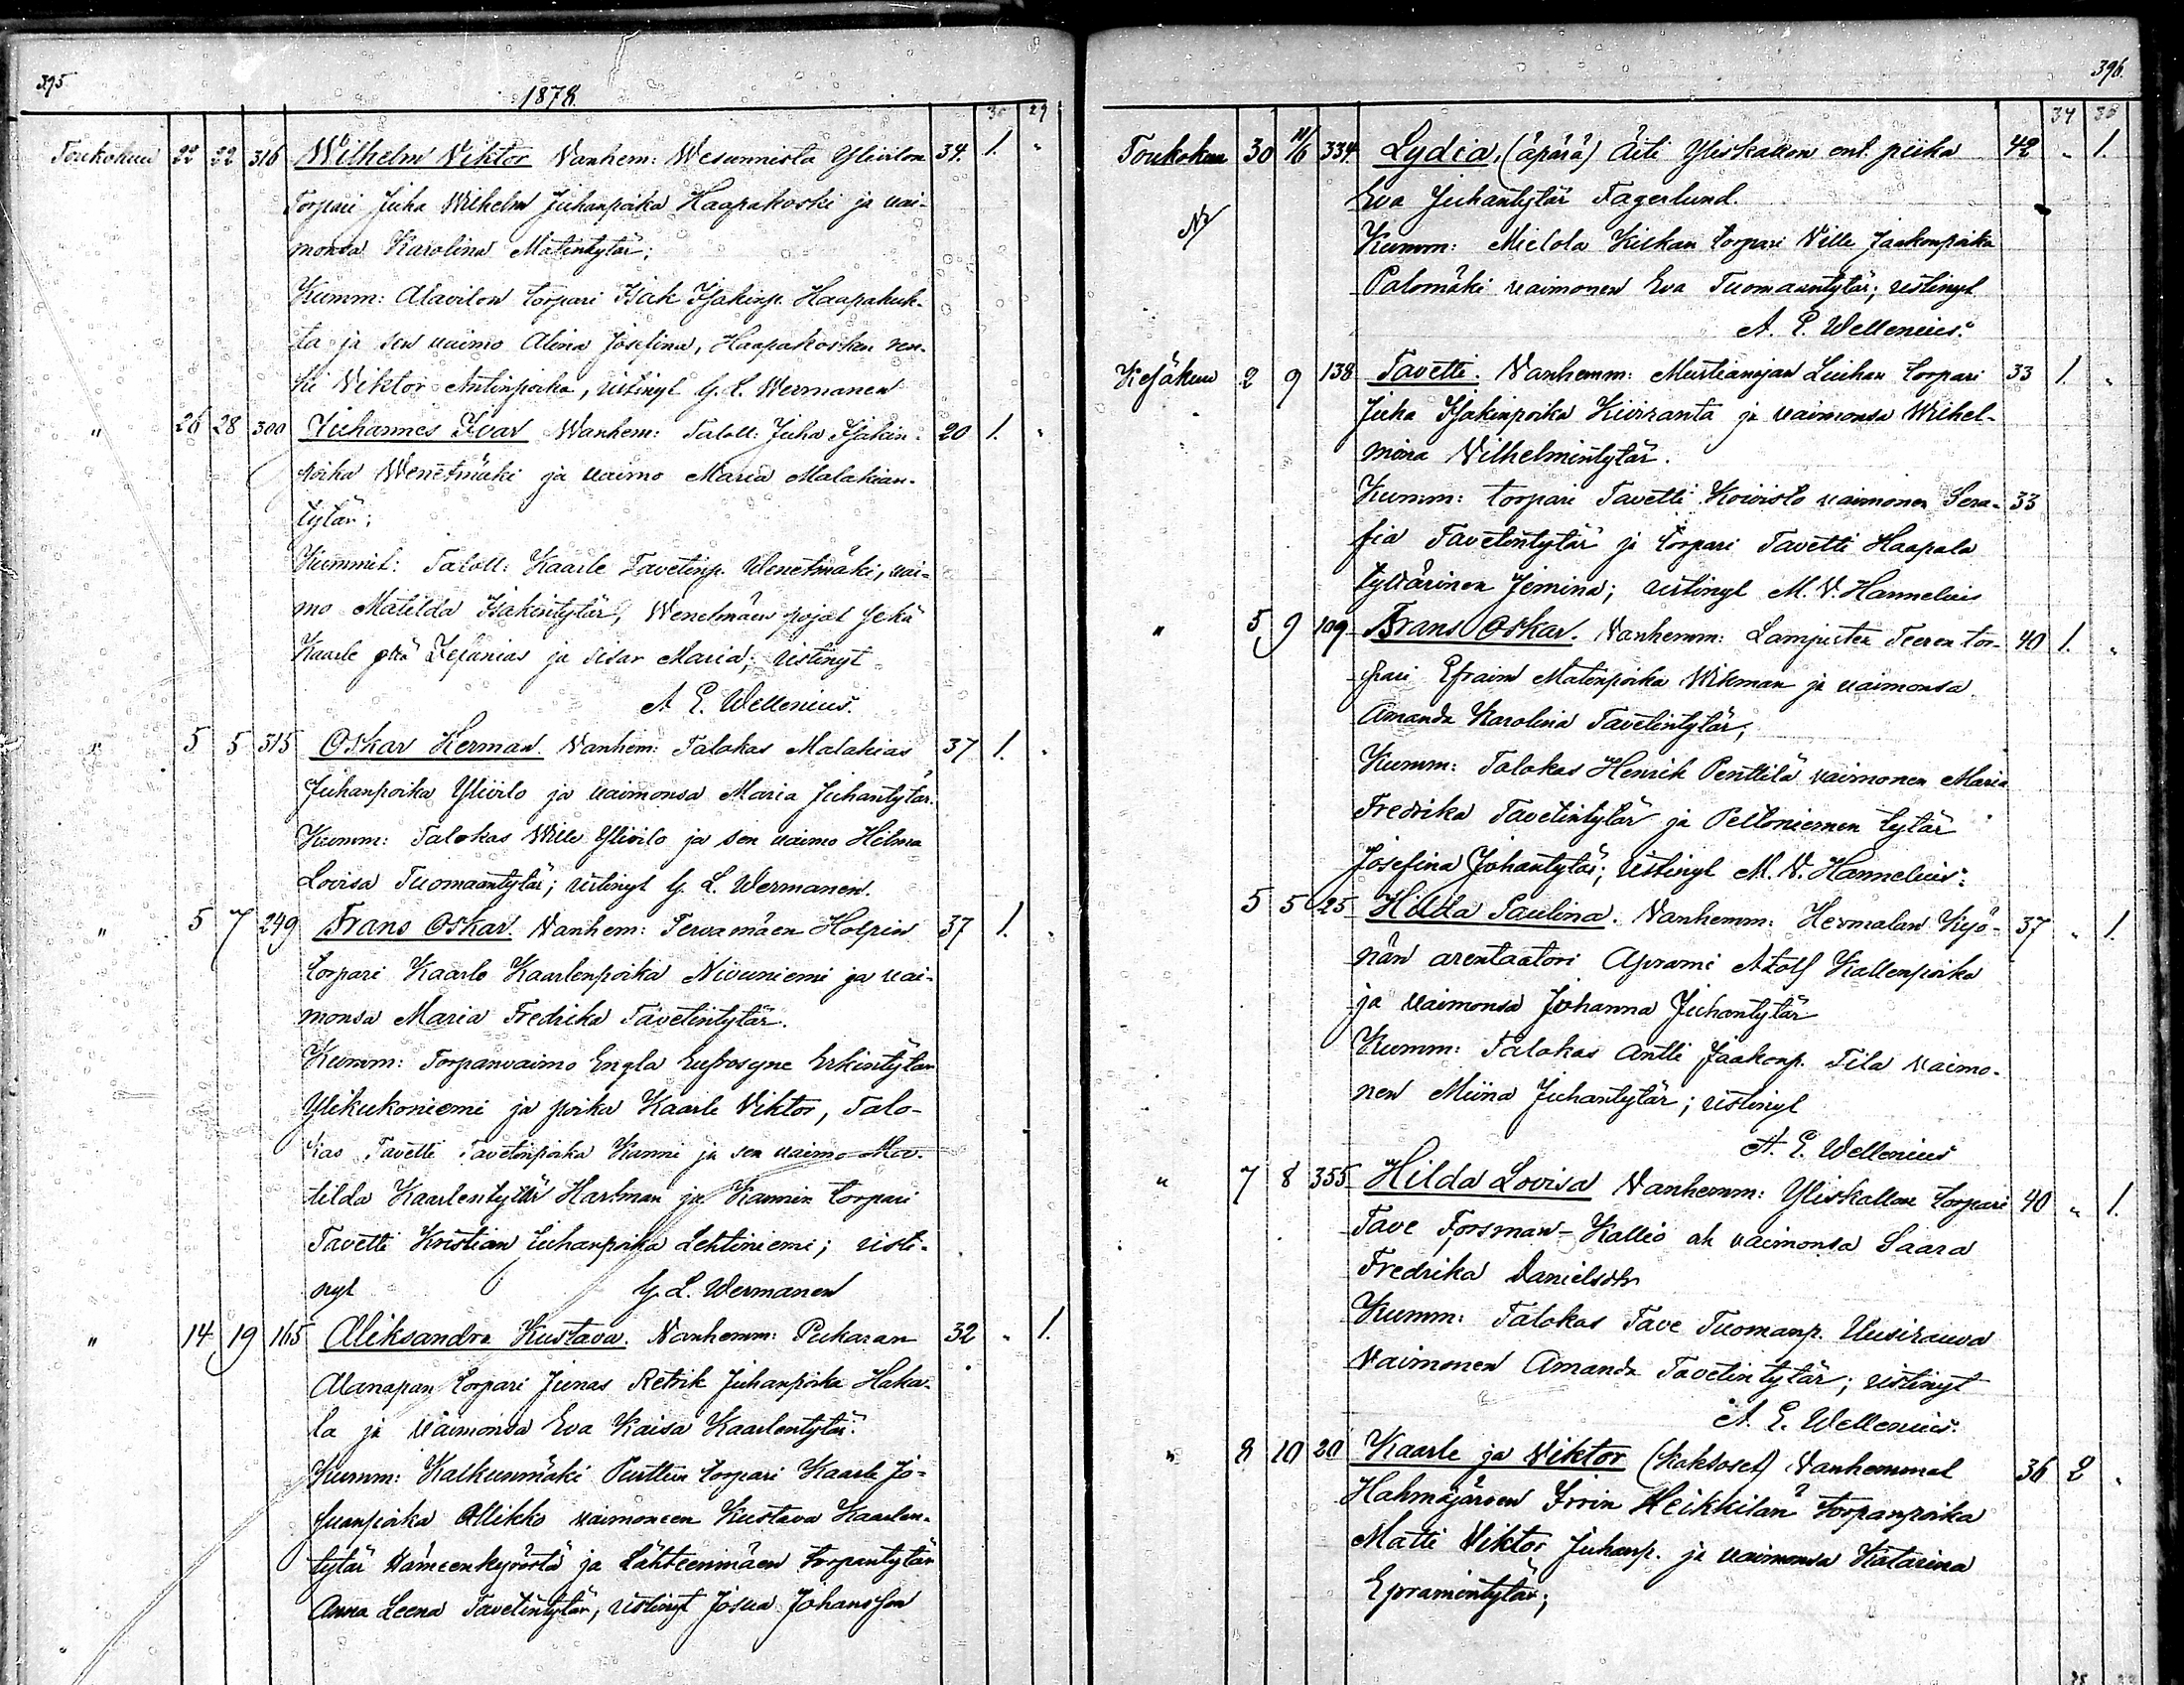 395.
1878.
30 29
Toukokuu 22 22 316 Wilhelm Viktor Vanhem: Wesunnista Ylivilon 34. 1. "
Torpari Juha Wilhelm Juhanpoika Haapakoski ja vai-
monsa Karolina Matintytär;
Kumm: Alavilon torpari Isak Isakinp. Haapakuk-
ka ja sen vaimo Alina Josefina, Haapakosken ren-
ki Viktor Antinpoika, ristinyt G. L. Wermanen
" 26 28 300 Juhannes Ivar Vanhem: Taloll: Juha Isakin- 20 1. "
poika Wenetmäki ja vaimo Maria Malakian-
tytär;
Kummit: Taloll: Kaarle Tavetinp. Wenetmäki, vai-
mo Matilda Isakintytär, Wenetmäen pojat sekä
Kaarle että Zefanias ja sisar Maria; ristinyt
A E. Wellenius.
" 5 5 315 Oskar Herman. Vanhem: Talokas Malakias 37 1. "
Juhanpoika Ylivilo ja vaimonsa Maria Juhantytär.
Kumm: Talokas Wille Ylivilo ja sen vaimo Hilma
Lovisa Tuomaantytär; ristinyt G. L. Wermanen.
" 5 7 249 Frans Oskar. Vanhem: Tervamäen Holpin 37 1. "
torpari Kaarle Kaarlenpoika Nivuniemi ja vai-
monsa Maria Fredrika Tavetintytär.
Kumm: Torpanvaimo Engla Eufrosyne Erkintytär
Ylikukoniemi ja poika Kaarle Viktor, Talo-
kas Tavetti Tavetinpoika Kanni ja sen vaimo Ma-
tilda Kaarlentytär Hartman ja Kannin torpari
Tavetti Kristian Juhanpoika Lehtiniemi; risti-
nyt G. L. Wermanen
" 14 19 165 Aliksandra Kustava. Vanhemm: Pukaran 32 " 1.
Alanapan torpari Junas Retrik Juhanpoika Haka-
la ja vaimonsa Eva Kaisa Kaarlentytär.
Kumm: Kalkunmäki Purttun torpari Kaarle Jo-
suanpoika Ollikko vaimoneen Kustava Kaarlen-
tytär Hämeenkyröstä ja Lähteenmäen torpantytär
Anna Leena Tavetintytär, ristinyt Josua Johansson
396.
34 30
Toukokuu 30 11/6 334 Lydia, (äpärä) Äiti Yliskallon ent. piika 42 " 1.
Eva Juhantytär Fagerlund.
Kumm: Mielola Kilkan torpari Ville Jaakonpoika
Palomäki vaimonen Eva Tuomaantytär; ristinyt
A. E. Wellenius.
Kesäkuu 2 9 138 Tavetti. Vanhemm: Mustianojan Luihan torpari 33 1. "
Juha Isakinpoika Kiviranta ja vaimonsa Wilhel-
mina Vilhelmintytär.
Kumm: torpari Tavetti Koivisto vaimonen Sera- 33
fia Tavetintytär ja torpari Tavetti Haapala
tyttärinen Jemina; ristinyt M. V. Hannelius
" 5 9 109 Frans Oskar. Vanhemm: Lampisten Teeren tor- 40 1. "
pari Efraim Matinpoika Wikman ja vaimonsa
Amanda Karolina Tavetintytär;
Kumm: Talokas Henrik Penttilä vaimonen Maria
Fredrika Tavetintytär ja Peltoniemen tytär
Josefina Johantytär; ristinyt M. V. Hannelius.
5 5 25 Hilda Paulina. Vanhemm: Hermalan Kyö- 37 " 1.
nän arentaatori Aprami Atolf Kallenpoika
ja vaimonsa Johanna Juhantytär
Kumm: Talokas Antti Jaakonp. Tila vaimo-
nen Miina Juhantytär; ristinyt
A. E. Wellenius
" 7 8 355 Hilda Lovisa Vanhemm: Yliskallon torpari 40 " 1.
Tave Forsman-Kallio ak vaimonsa Saara
Fredrika Danielsdtr
Kumm: Talokas Tave Tuomanp. Uusirauva
vaimonen Amanda Tavetintytär; ristinyt
A. E. Wellenius.
" 8 10 20 Kaarle ja Viktor (kaksoset) Vanhemmat 36 2 "
Hahmajärven Heikkilän torpanpoika
Matti Viktor Juhanp. ja vaimonsa Katarina
Epramintytär;